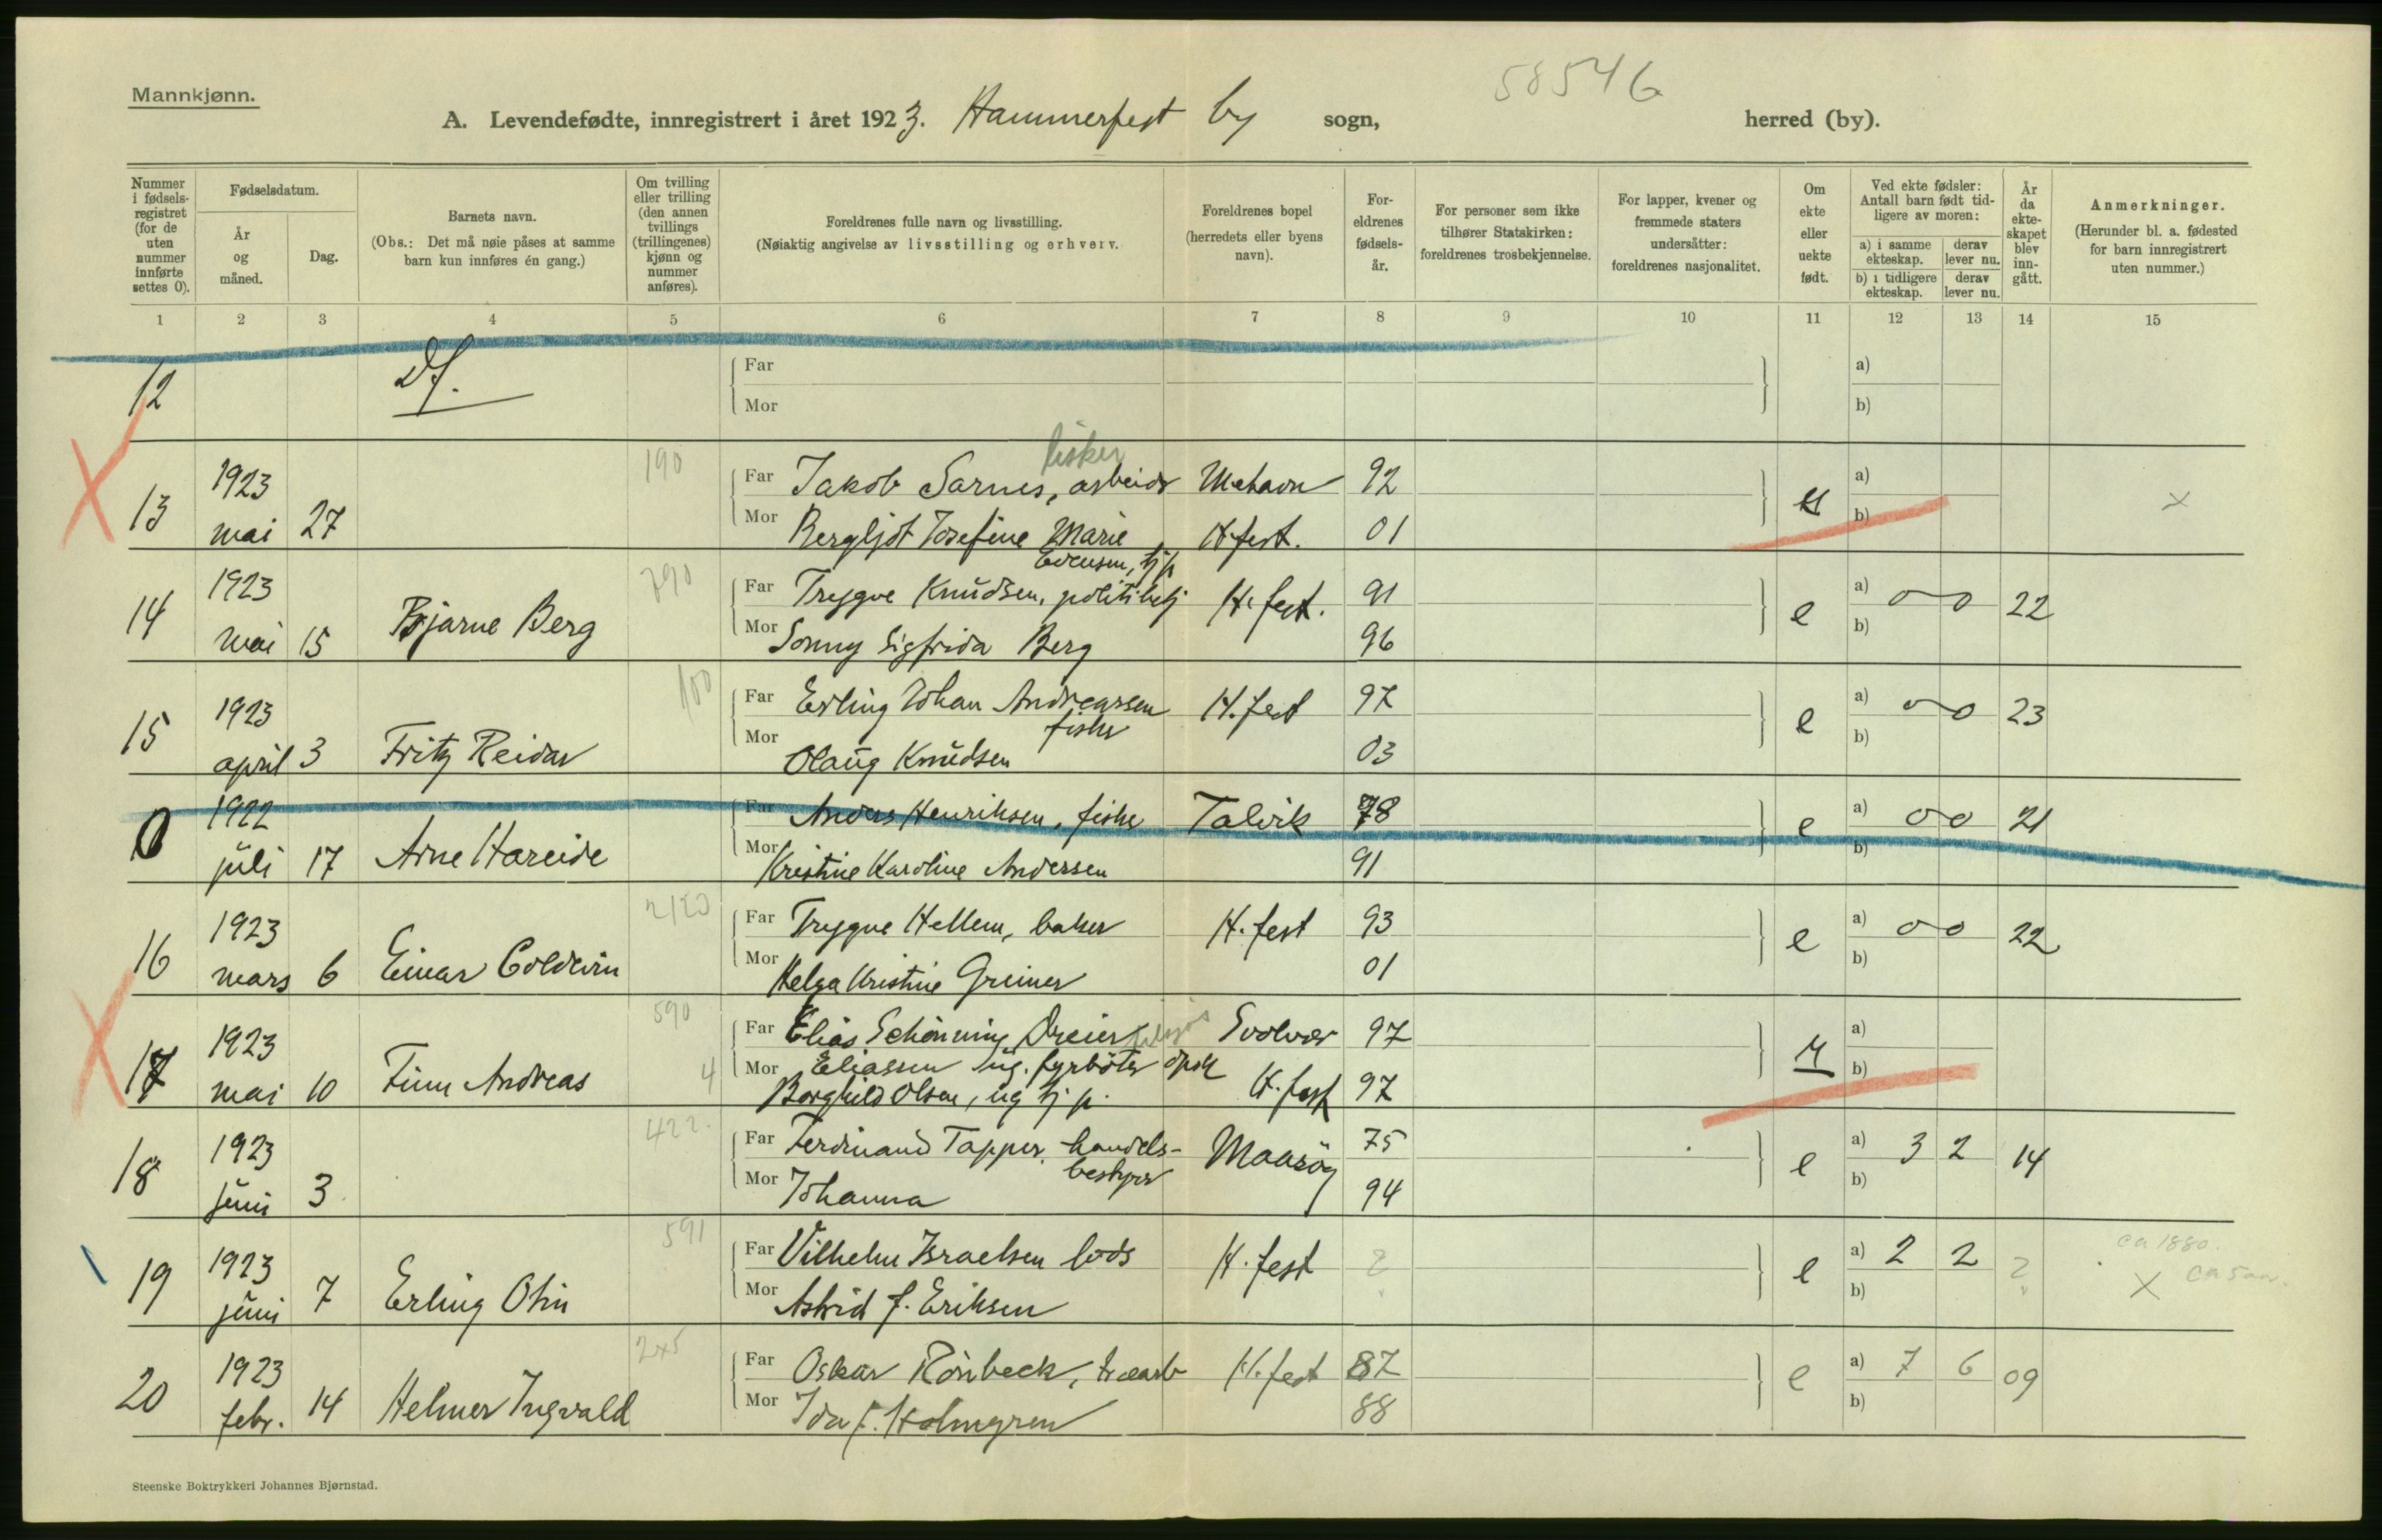 58546
Mannkjønn.
A. Levendefødte, innregistrert i året 1923. Hammerfest by sogn, herred (by).
Nummer i fødsels-registret (for de uten nummer innførte settes 0).
Fødselsdatum.
År og måned.
Dag.
Barnets navn.
(Obs.: Det må nøie påses at samme barn kun innføres én gang.)
Om tvilling eller trilling (den annen tvillings (trillingenes) kjønn og nummer anføres).
Foreldrenes fulle navn og livsstilling.
(Nøiaktig angivelse av livsstilling og erhverv.
Foreldrenes bopel (herredets eller byens navn).
For-eldrenes fødsels-år.
For personer som ikke tilhører Statskirken: foreldrenes trosbekjennelse.
For lapper, kvener og fremmede staters undersåtter: foreldrenes nasjonalitet.
Om ekte eller uekte født.
Ved ekte fødsler: Antall barn født tid-ligere av moren:
a) i samme ekteskap.
derav lever nu.
b) i tidligere ekteskap.
derav lever nu.
År da ekte-skapet blev inn-gått.
Anmerkninger.
(Herunder bl. a. fødested for barn innregistrert uten nummer.)
1 2 3 4 5 6 7 8 9 10 11 12 13 14 15
12 Df. Far a)
Mor b)
fisker
13 1923 190 Far Jakob Sarnes, arbeidr Mehavn 92 u a) x
mai 27 Mor Bergljot Josefine Marie H.fest. 01 b)
Evensen, tj p
14 1923 790 Far Trygve Knudsen, politibetj H.fest. 91 e a) 0 0 22
mai 15 Bjarne Berg Mor Sonny Sigfrida Berg 96 b)
15 1923 100 Far Erling Johan Andreassen H.fest 97 e a) 0 0 23
fisker
april 3 Fritz Reidar Mor Olaug Knudsen 03 b)
0 1922 Far Anders Henriksen, fisker Talvik 78 e a) 0 0 21
juli 17 Arne Hareide Mor Kristine Karoline Andersen 91 b)
16 1923 2120 Far Trygve Hellem, baker H.fest 93 e a) 0 0 22
mars 6 Einar Coldevin Mor Helga Kristine Greiner 01 b)
17 1923 590 Far Elias Schönning Dreier Svolvær 97 u a)
Eliassen ug. fyrböter
mai 10 Finn Andreas 4 Mor Borghild Olsen, ug tj p. H.fest 97 b)
18 1923 422. Far Ferdinand Tapper, handels- Maasöy 75 e a) 3 2 14
bestyrer
juni 3 Mor Johanna 94 b)
19 1923 591 Far Vilhelm Israelsen lods H.fest ? e a) 2 2 ? ca 1880.
juni 7 Erling Otin Mor Astrid f. Eriksen " b) " x
20 1923 245 Far Oskar Rönbeck, H.fest 87 e a) 7 6 09
febr. 14 Helmer Ingvald Mor Ida f. Holmgren 88 b)
Steenske Boktrykkeri Johannes Bjørnstad.